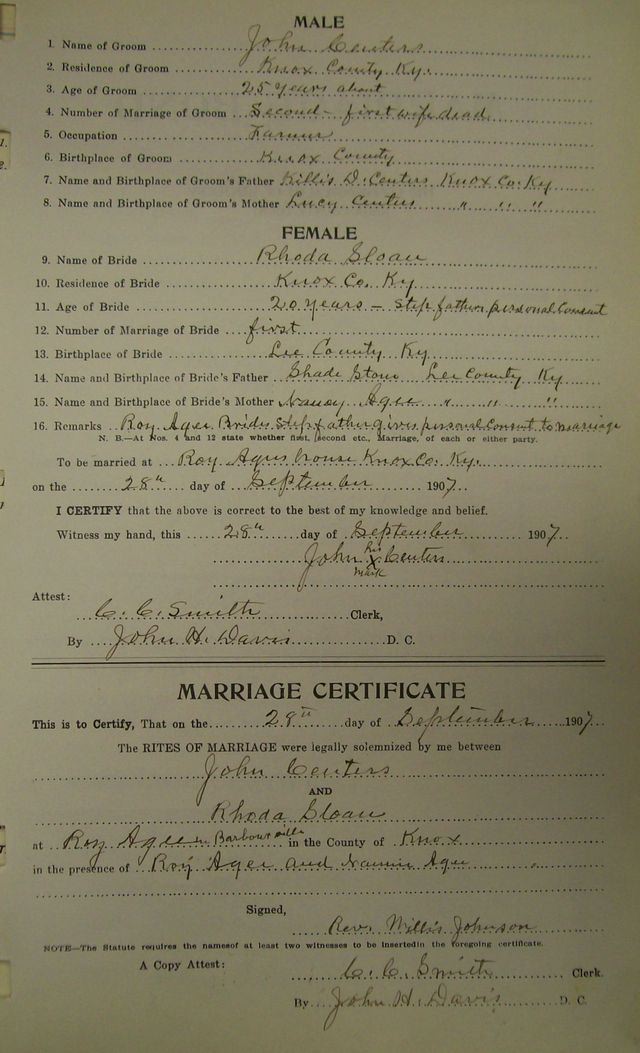 MALE
1. Name of Groom John Centers
2. Residence of Groom Knox County Ky.
3. Age of Groom 25 years about
4. Number of Marriage of Groom Second - first wife dead
5. Occupation Farmer
6. Birthplace of Groom Knox County
7. Name and Birthplace of Groom's Father Killis D. Centers Knox Co. Ky
8. Name and Birthplace of Groom's Mother Lucy Centers " " "
FEMALE
9. Name of Bride Rhoda Sloan
10. Residence of Bride Knox Co. Ky
11. Age of Bride 20 years - Step fathers personal Consent
12. Number of Marriage of Bride first
13. Birthplace of Bride Lee County Ky
14. Name and Birthplace of Bride's Father Shade Lee County Ky
15. Name and Birthplace of Bride's Mother Nancy Agee " " "
16. Remarks Roy Agee Brides Step father gives personal Consent to marriage
N. B.—At Nos. 4 and 12 state whether first, second etc., Marriage, of each or either party.
To be married at Roy Agees house Knox Co. Ky.
on the 28th day of September 1907
I CERTIFY that the above is correct to the best of my knowledge and belief.
Witness my hand, this 28th day of September 1907
his
John X Centers
mark
Attest:
C. C. Smith Clerk,
By John H. Davis D. C.
MARRIAGE CERTIFICATE
This is to Certify, That on the 28th day of September 1907
The RITES OF MARRIAGE were legally solemnized by me between
John Centers
AND
Rhoda Sloan
at Roy Agee Barbourville in the County of Knox
in the presence of Roy Agee and Agee
Signed,
Rev. Willis Johnson
NOTE—The Statute requires the namesof at least two witnesses to be insertedin the foregoing certificate.
A Copy Attest: C. C. Smith Clerk.
By John H. Davis D. C.